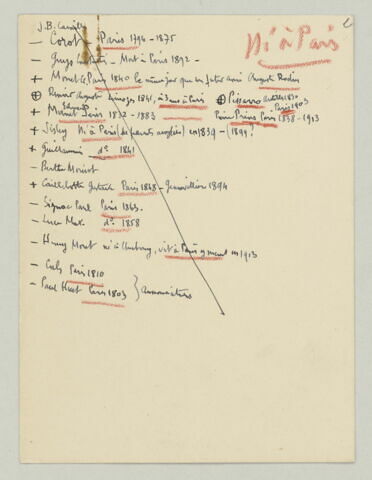 J.B. Camille
Né à Paris
— Corot Paris 1794 – 1875
— Guys Mort à Paris 1892 –
+ Monet Paris 1840 le même jour que Auguste Rodin
⊕ Renoir Limoges 1841, à Paris ⊕ Pissarro 1830 Paris 1903
+ Manet Paris 1832 – 1883 Prins Paris 1838 – 1913
+ Sisley Né à Paris (de parents anglais) en 1839 – (1899)
+ Guillaumin d° 1841
— Berthe Morisot
+ Caillebotte Gustave Paris 1848 – Gennevilliers 1894
— Signac Paul Paris 1863 –
— Luce Max. d° 1858
— Henry Moret né à Cherbourg, vit à Paris y meurt en 1913
— Cals Paris 1810
— Paul Huet Paris 1803 } Annonciateurs